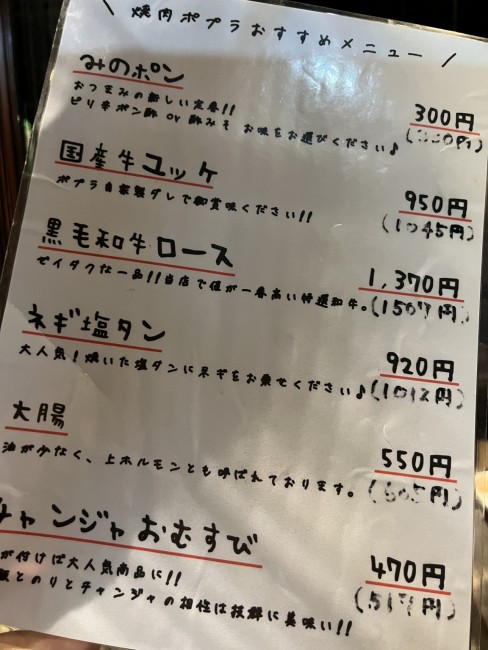 \ 焼肉ポプラおすすめメニュー /
みのポン 300円
おつまみの新しい定番!!
ピリ辛ポン酢 or 酢みそ お味をお選びください♪
国産牛ユッケ 950円
ポプラ自家製ダレで御賞味ください!! (1045円)
黒毛和牛ロース 1,370円
ゼイタクな一品!!当店で値が一番高い特選和牛。(1507円)
ネギ塩タン 920円
大人気!焼いた塩タンにネギをお乗せください♪(1012円)
大腸 550円
油が少なく、上ホルモンとも呼ばれております。(605円)
チャンジャおむすび 470円
が付けば大人気商品に!! (517円)
飯とのりとチャンジャの相性は抜群に美味い!!